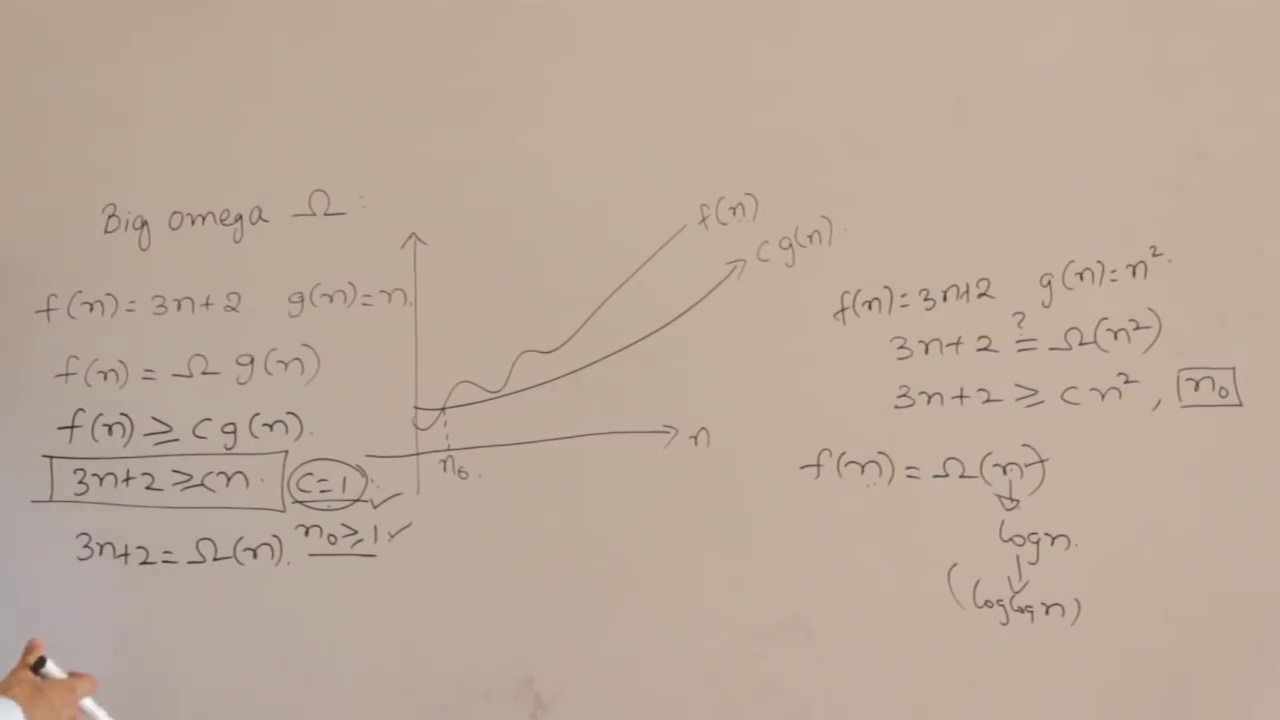 Big omega Ω :
f(n) = 3n+2 g(n)=n.
f(n) = Ω g(n)
f(n) ≥ c g(n).
3n+2 ≥ cn. c=1
3n+2 = Ω(n). n₀ ≥ 1 ✓
f(n)
c g(n).
n
n₀.
f(n) = 3n+2 g(n)=n².
3n+2 ≟ Ω(n²)
3n+2 ≥ cn², n₀
f(n) = Ω(n)
logn.
(loglogn)